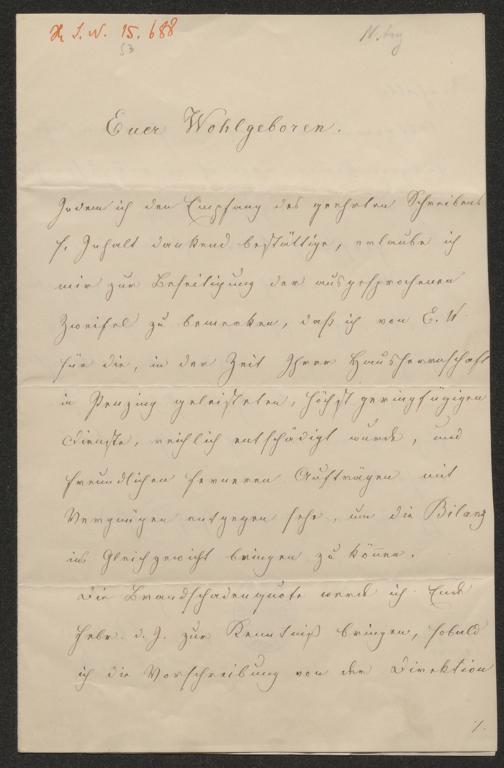 J. N. 15.688
53
Euer Wohlgeboren.
Indem ich den Empfang des geehrten Schreibens
s. Inhalt dankend bestättige, erlaube ich
mir zur Beseitigung der ausgesprochenen
Zweifel zu bemerken, daß ich von E. W.
für die, in der Zeit Ihrer Hausherrnschaft
in Penzing geleisteten, höchst geringfügigen
Dienste, reichlich entschädigt wurde, und
freundlichen ferneren Aufträgen mit
Vergnügen entgegen sehe, um die Bilanz
ins Gleichgewicht bringen zu können.
Die Brandschadenquote werde ich Ende
Febr. d. J. zur Kenntniß bringen, sobald
ich die Vorschreibung von der Direktion
./.